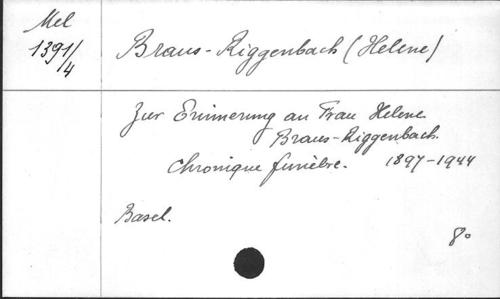 Mel
1391/4
Braus-Riggenbach (Helene)
Zur Erinnerung an Frau Helene
Braus-Riggenbach.
Chronique funèbre. 1897-1944
Basel.
8°